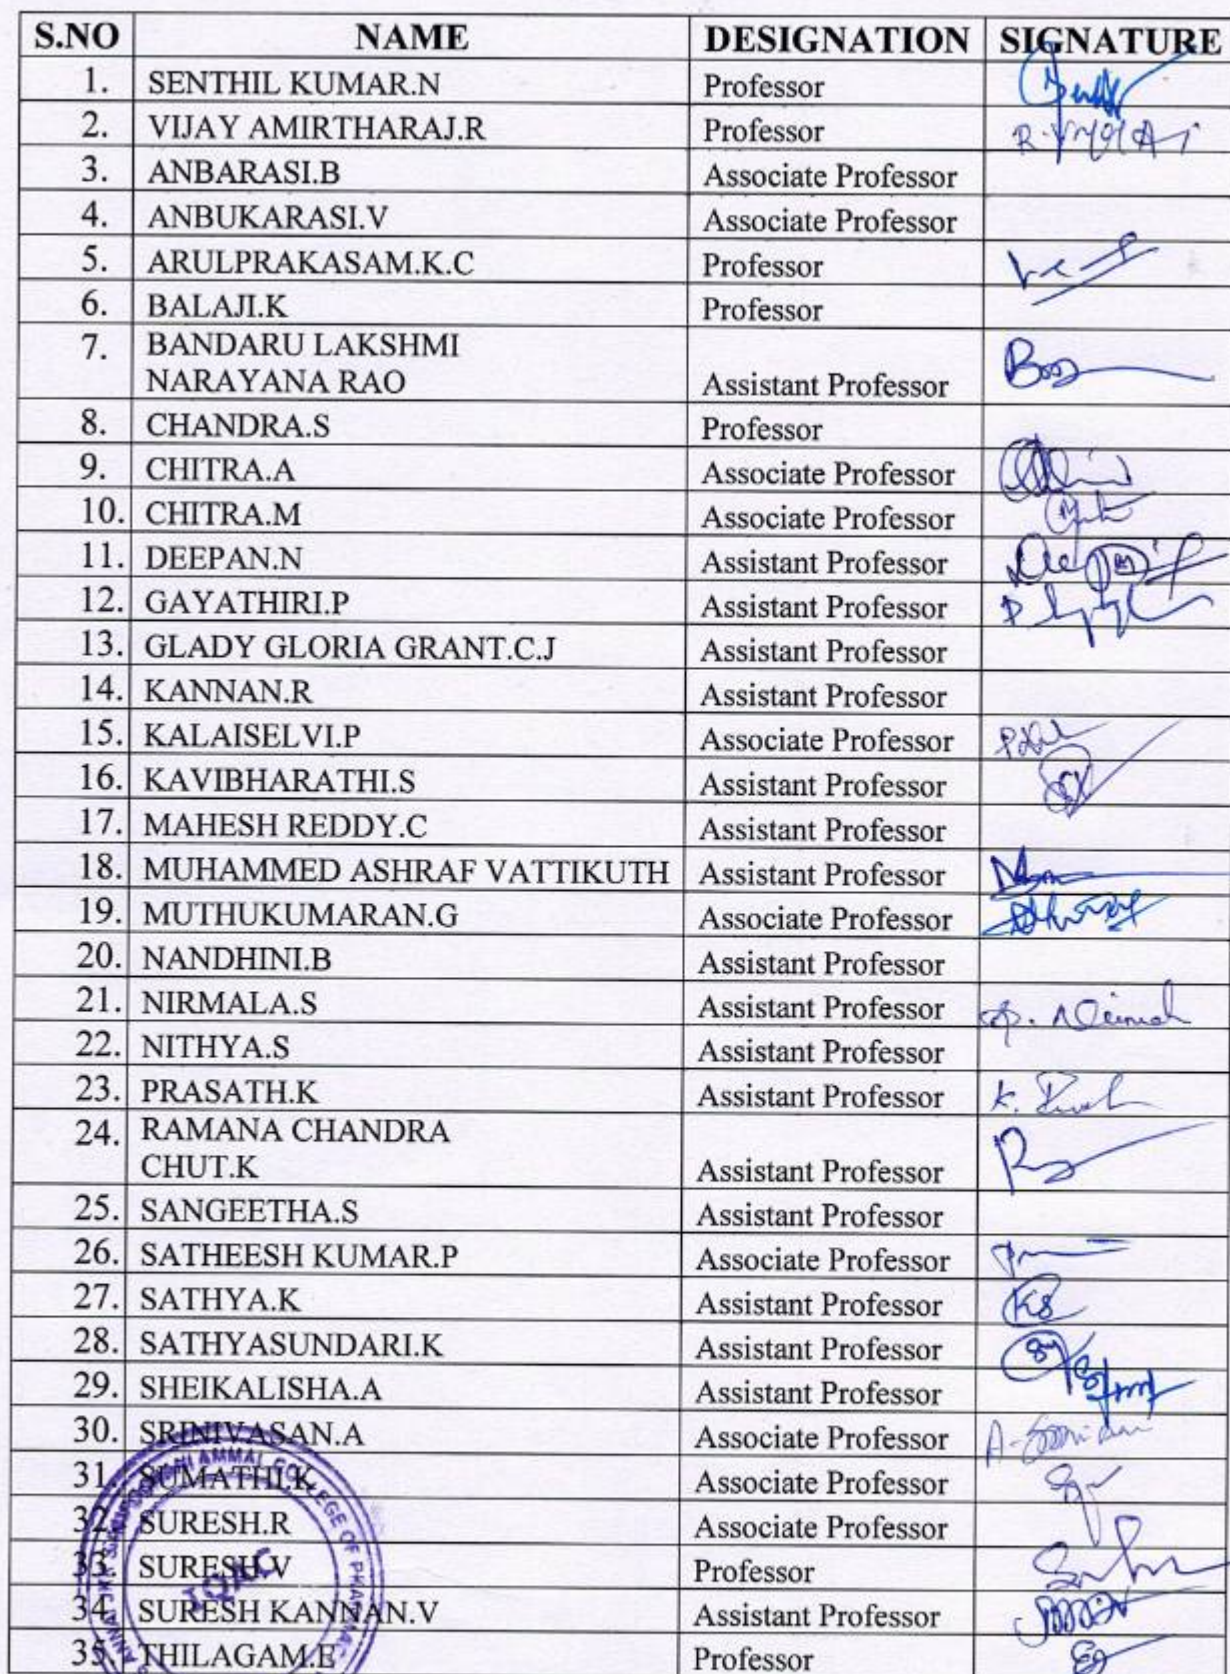 S.NO NAME DESIGNATION SIGNATURE
1. SENTHIL KUMAR.N Professor
2. VIJAY AMIRTHARAJ.R Professor
3. ANBARASI.B Associate Professor
4. ANBUKARASI.V Associate Professor
5. ARULPRAKASAM.K.C Professor
6. BALAJI.K Professor
7. BANDARU LAKSHMI
NARAYANA RAO Assistant Professor
8. CHANDRA.S Professor
9. CHITRA.A Associate Professor
10. CHITRA.M Associate Professor
11. DEEPAN.N Assistant Professor
12. GAYATHIRI.P Assistant Professor
13. GLADY GLORIA GRANT.C.J Assistant Professor
14. KANNAN.R Assistant Professor
15. KALAISELVI.P Associate Professor
16. KAVIBHARATHI.S Assistant Professor
17. MAHESH REDDY.C Assistant Professor
18. MUHAMMED ASHRAF VATTIKUTH Assistant Professor
19. MUTHUKUMARAN.G Associate Professor
20. NANDHINI.B Assistant Professor
21. NIRMALA.S Assistant Professor
22. NITHYA.S Assistant Professor
23. PRASATH.K Assistant Professor
24. RAMANA CHANDRA
CHUT.K Assistant Professor
25. SANGEETHA.S Assistant Professor
26. SATHEESH KUMAR.P Associate Professor
27. SATHYA.K Assistant Professor KS
28. SATHYASUNDARI.K Assistant Professor
29. SHEIKALISHA.A Assistant Professor
30. SRINIVASAN.A Associate Professor
31. SUMATHI.K Associate Professor
32. SURESH.R Associate Professor
33. SURESH.V Professor
34. SURESH KANNAN.V Assistant Professor
35. THILAGAM.E Professor
AMMAL COLLEGE OF
IQAC